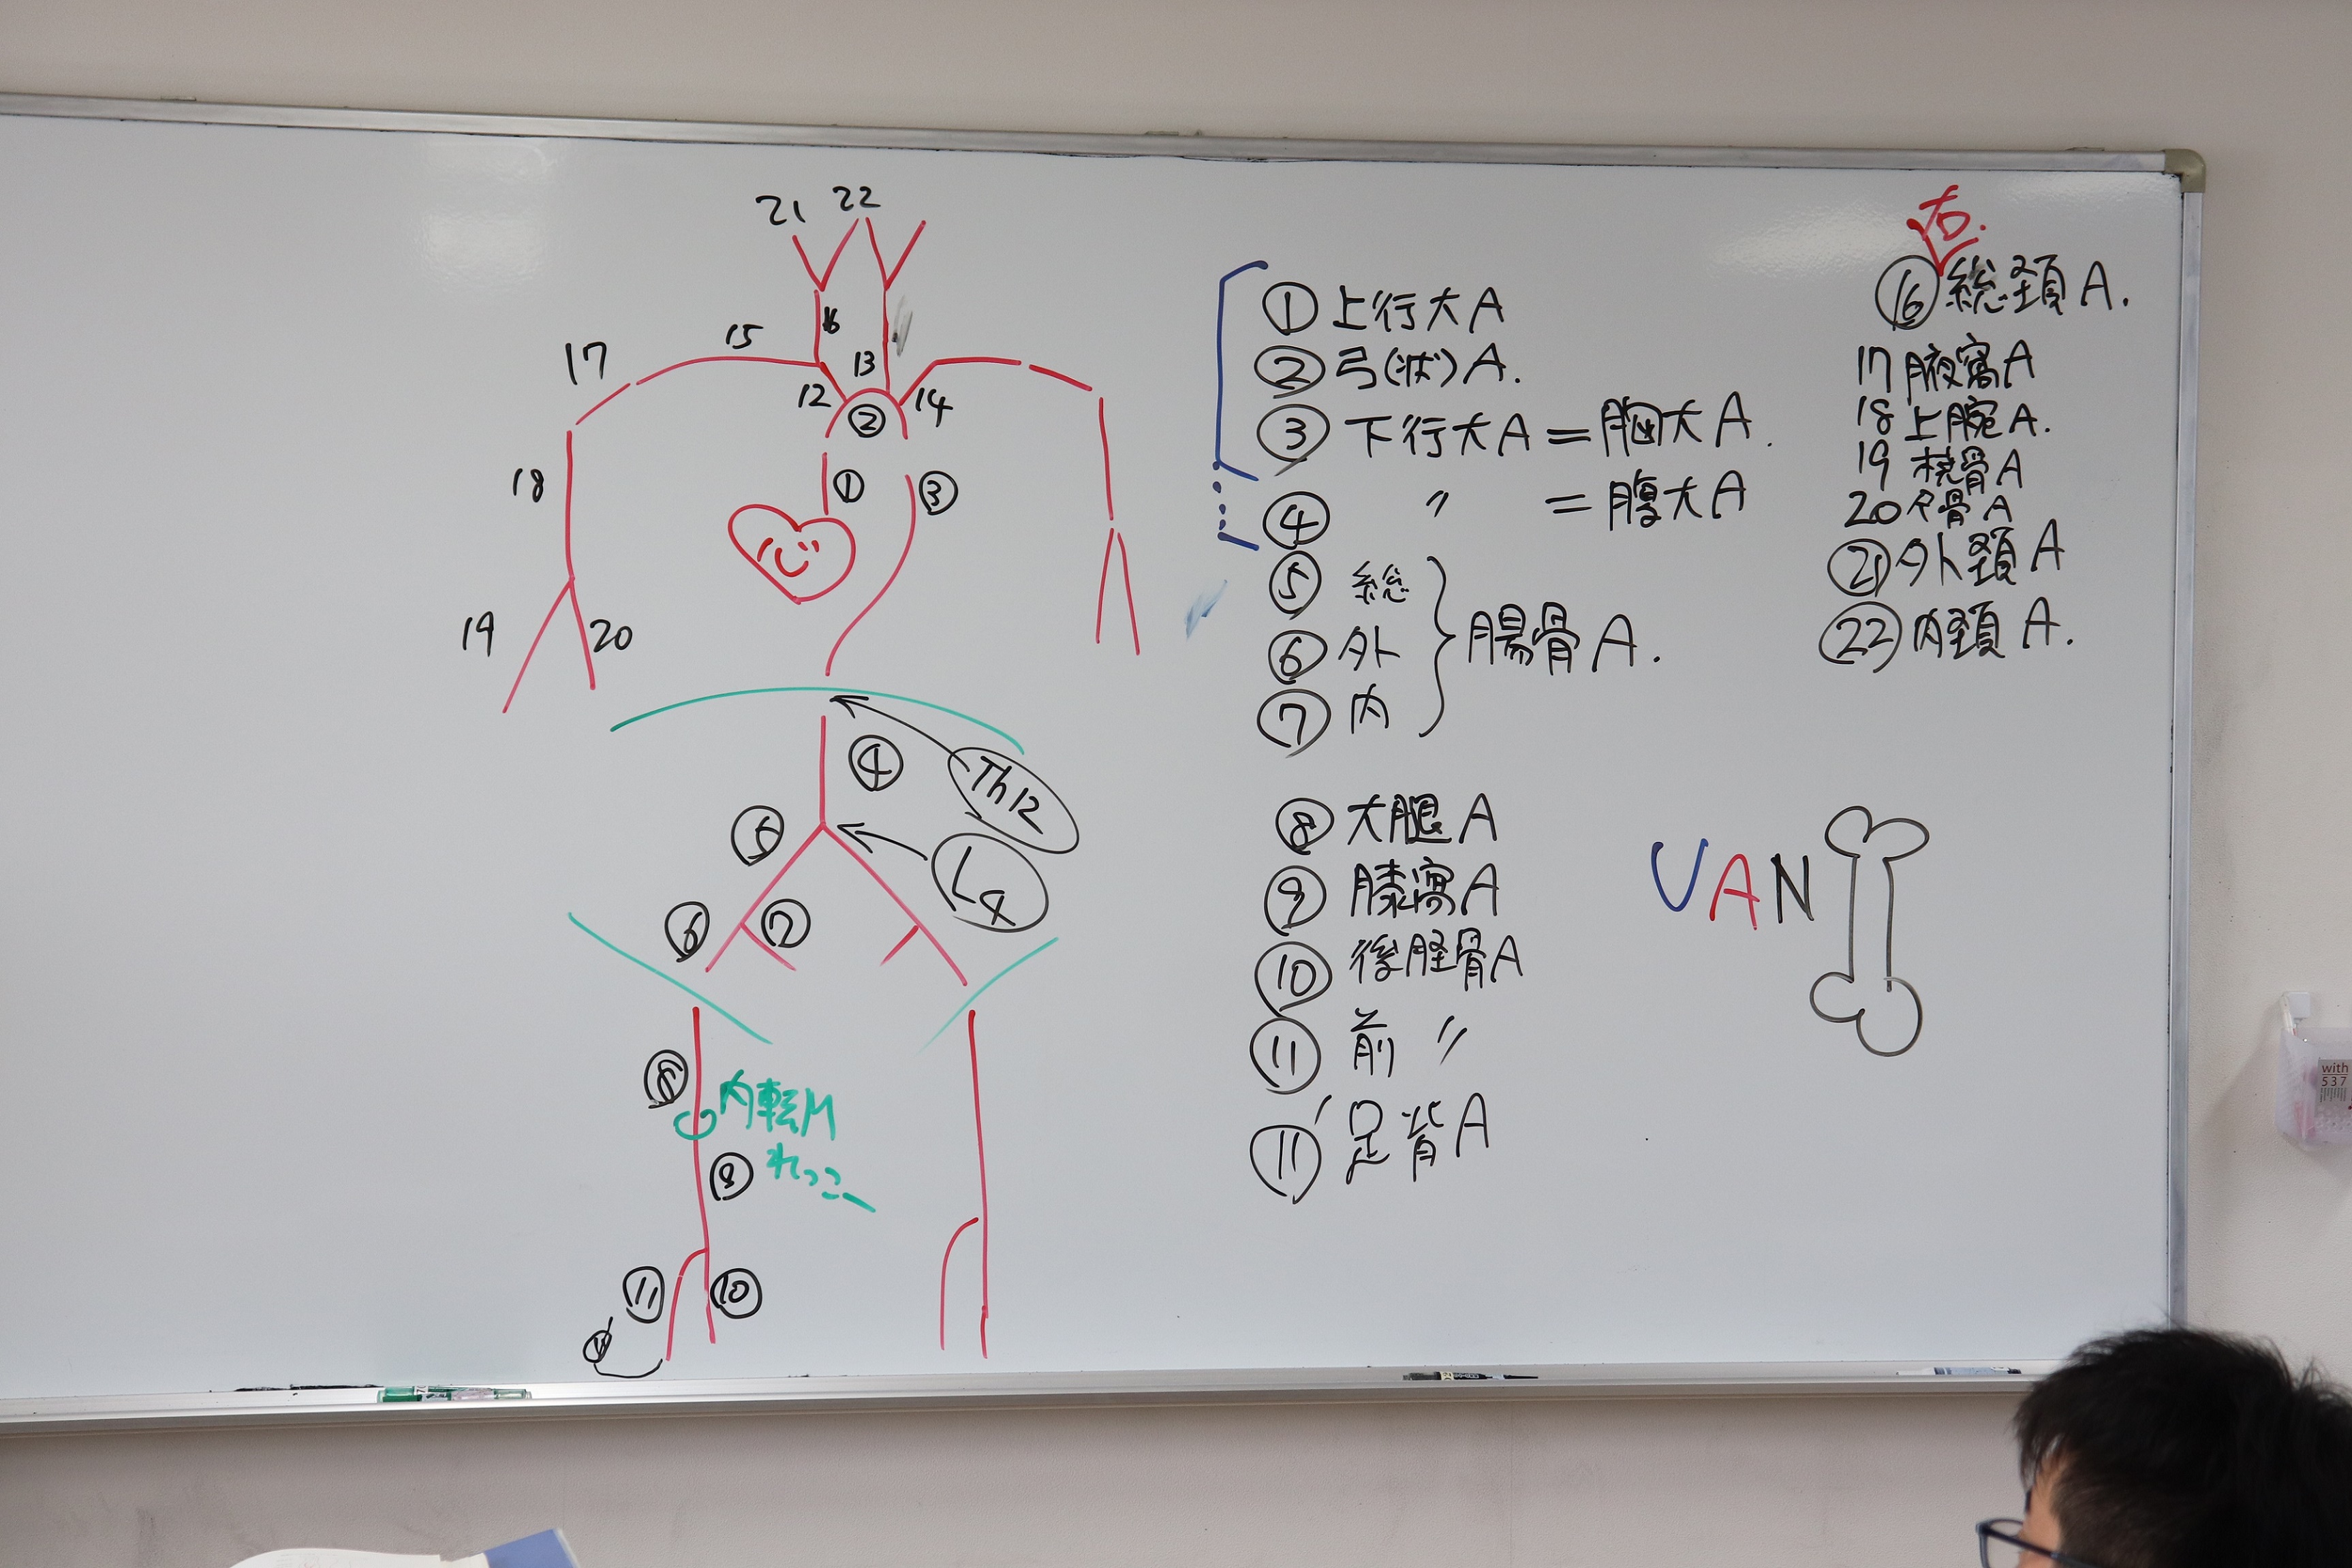 21 22
16
15
17
13
12
②
14
18
①
③
19
20
④
Th12
L4
⑥
⑦
⑧
内転M
れっこー
⑨
⑪
⑩
① 上行大A
② 弓(状)A.
③ 下行大A=胸大A.
④ 〃 =腹大A
⑤ 総
⑥ 外
⑦ 内
腸骨A.
⑧ 大腿A
⑨ 膝窩A
⑩ 後脛骨A
⑪ 前 〃
⑪' 足背A
右.
⑯ 総頚A.
17 腋窩A
18 上腕A.
19 橈骨A
20 尺骨A
㉑ 外頚A
㉒ 内頚A.
VAN
with
537